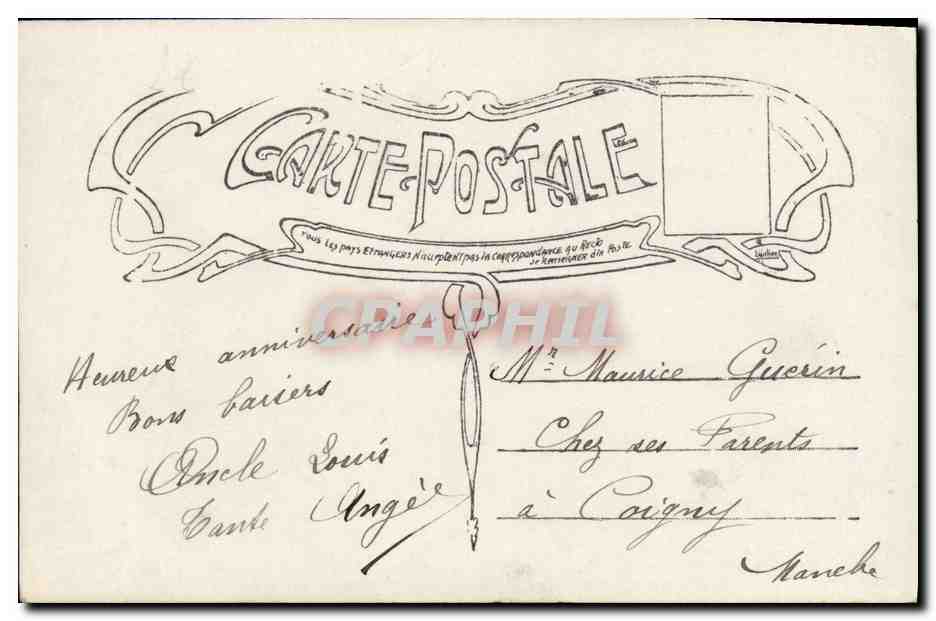 CARTE POSTALE
TOUS LES PAYS ETRANGERS N'acceptent pas la CORRESPONDANCE au Recto
Se RENSEIGNER à la Poste
CPAPHIL
Heureux anniversaire
Bons baisers
Oncle Louis
Tante Angèle
Mr Maurice Guérin
Chez ses Parents
à Coigny
Manche